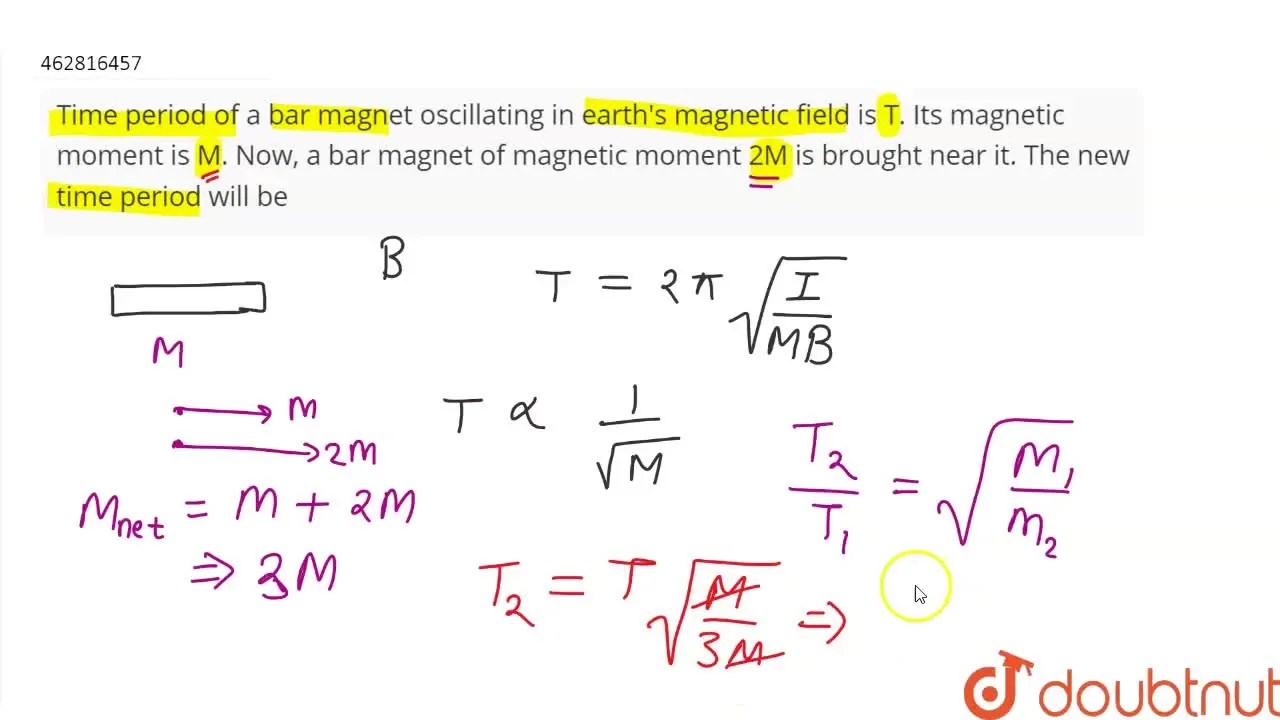 462816457
Time period of a bar magnet oscillating in earth's magnetic field is T. Its magnetic
moment is M. Now, a bar magnet of magnetic moment 2M is brought near it. The new
time period will be
B
T = 2π √(I/MB)
M
M
T ∝ 1/√M
2M
T₂/T₁ = √(M₁/M₂)
Mnet = M + 2M
⇒ 3M
T₂ = T √(M/3M) ⇒
doubtnut